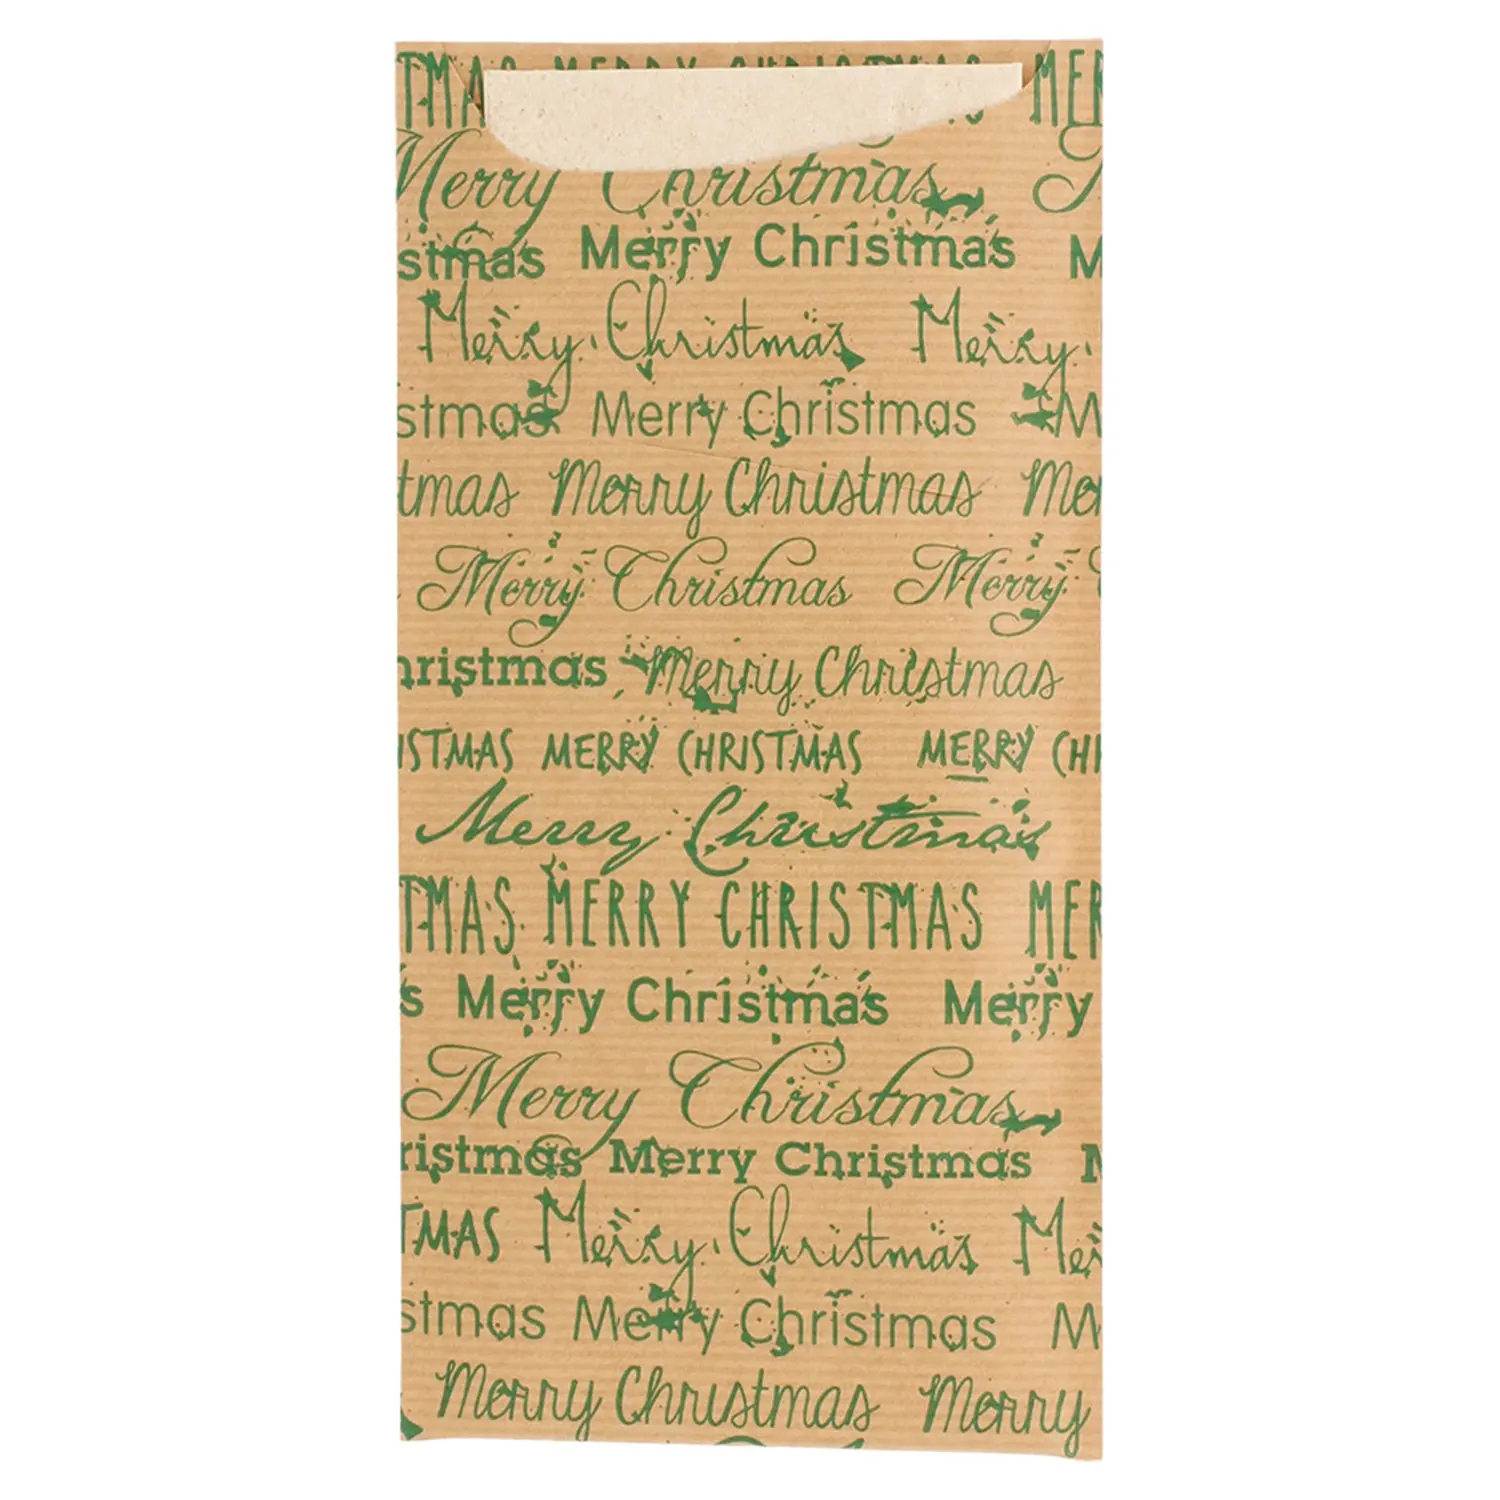 TMAS MERRY CHRISTMAS MER
Merry Christmas
stmas Merry Christmas M
Merry Christmas Merry
stmas Merry Christmas M
tmas Merry Christmas Me
Merry Christmas Merry
hristmas Merry Christmas
ISTMAS MERRY CHRISTMAS MERRY CH
Merry Christmas
TMAS MERRY CHRISTMAS MER
s Merry Christmas Merry
Merry Christmas
ristmas Merry Christmas M
TMAS Merry Christmas Me
stmas Merry Christmas M
Merry Christmas Merry